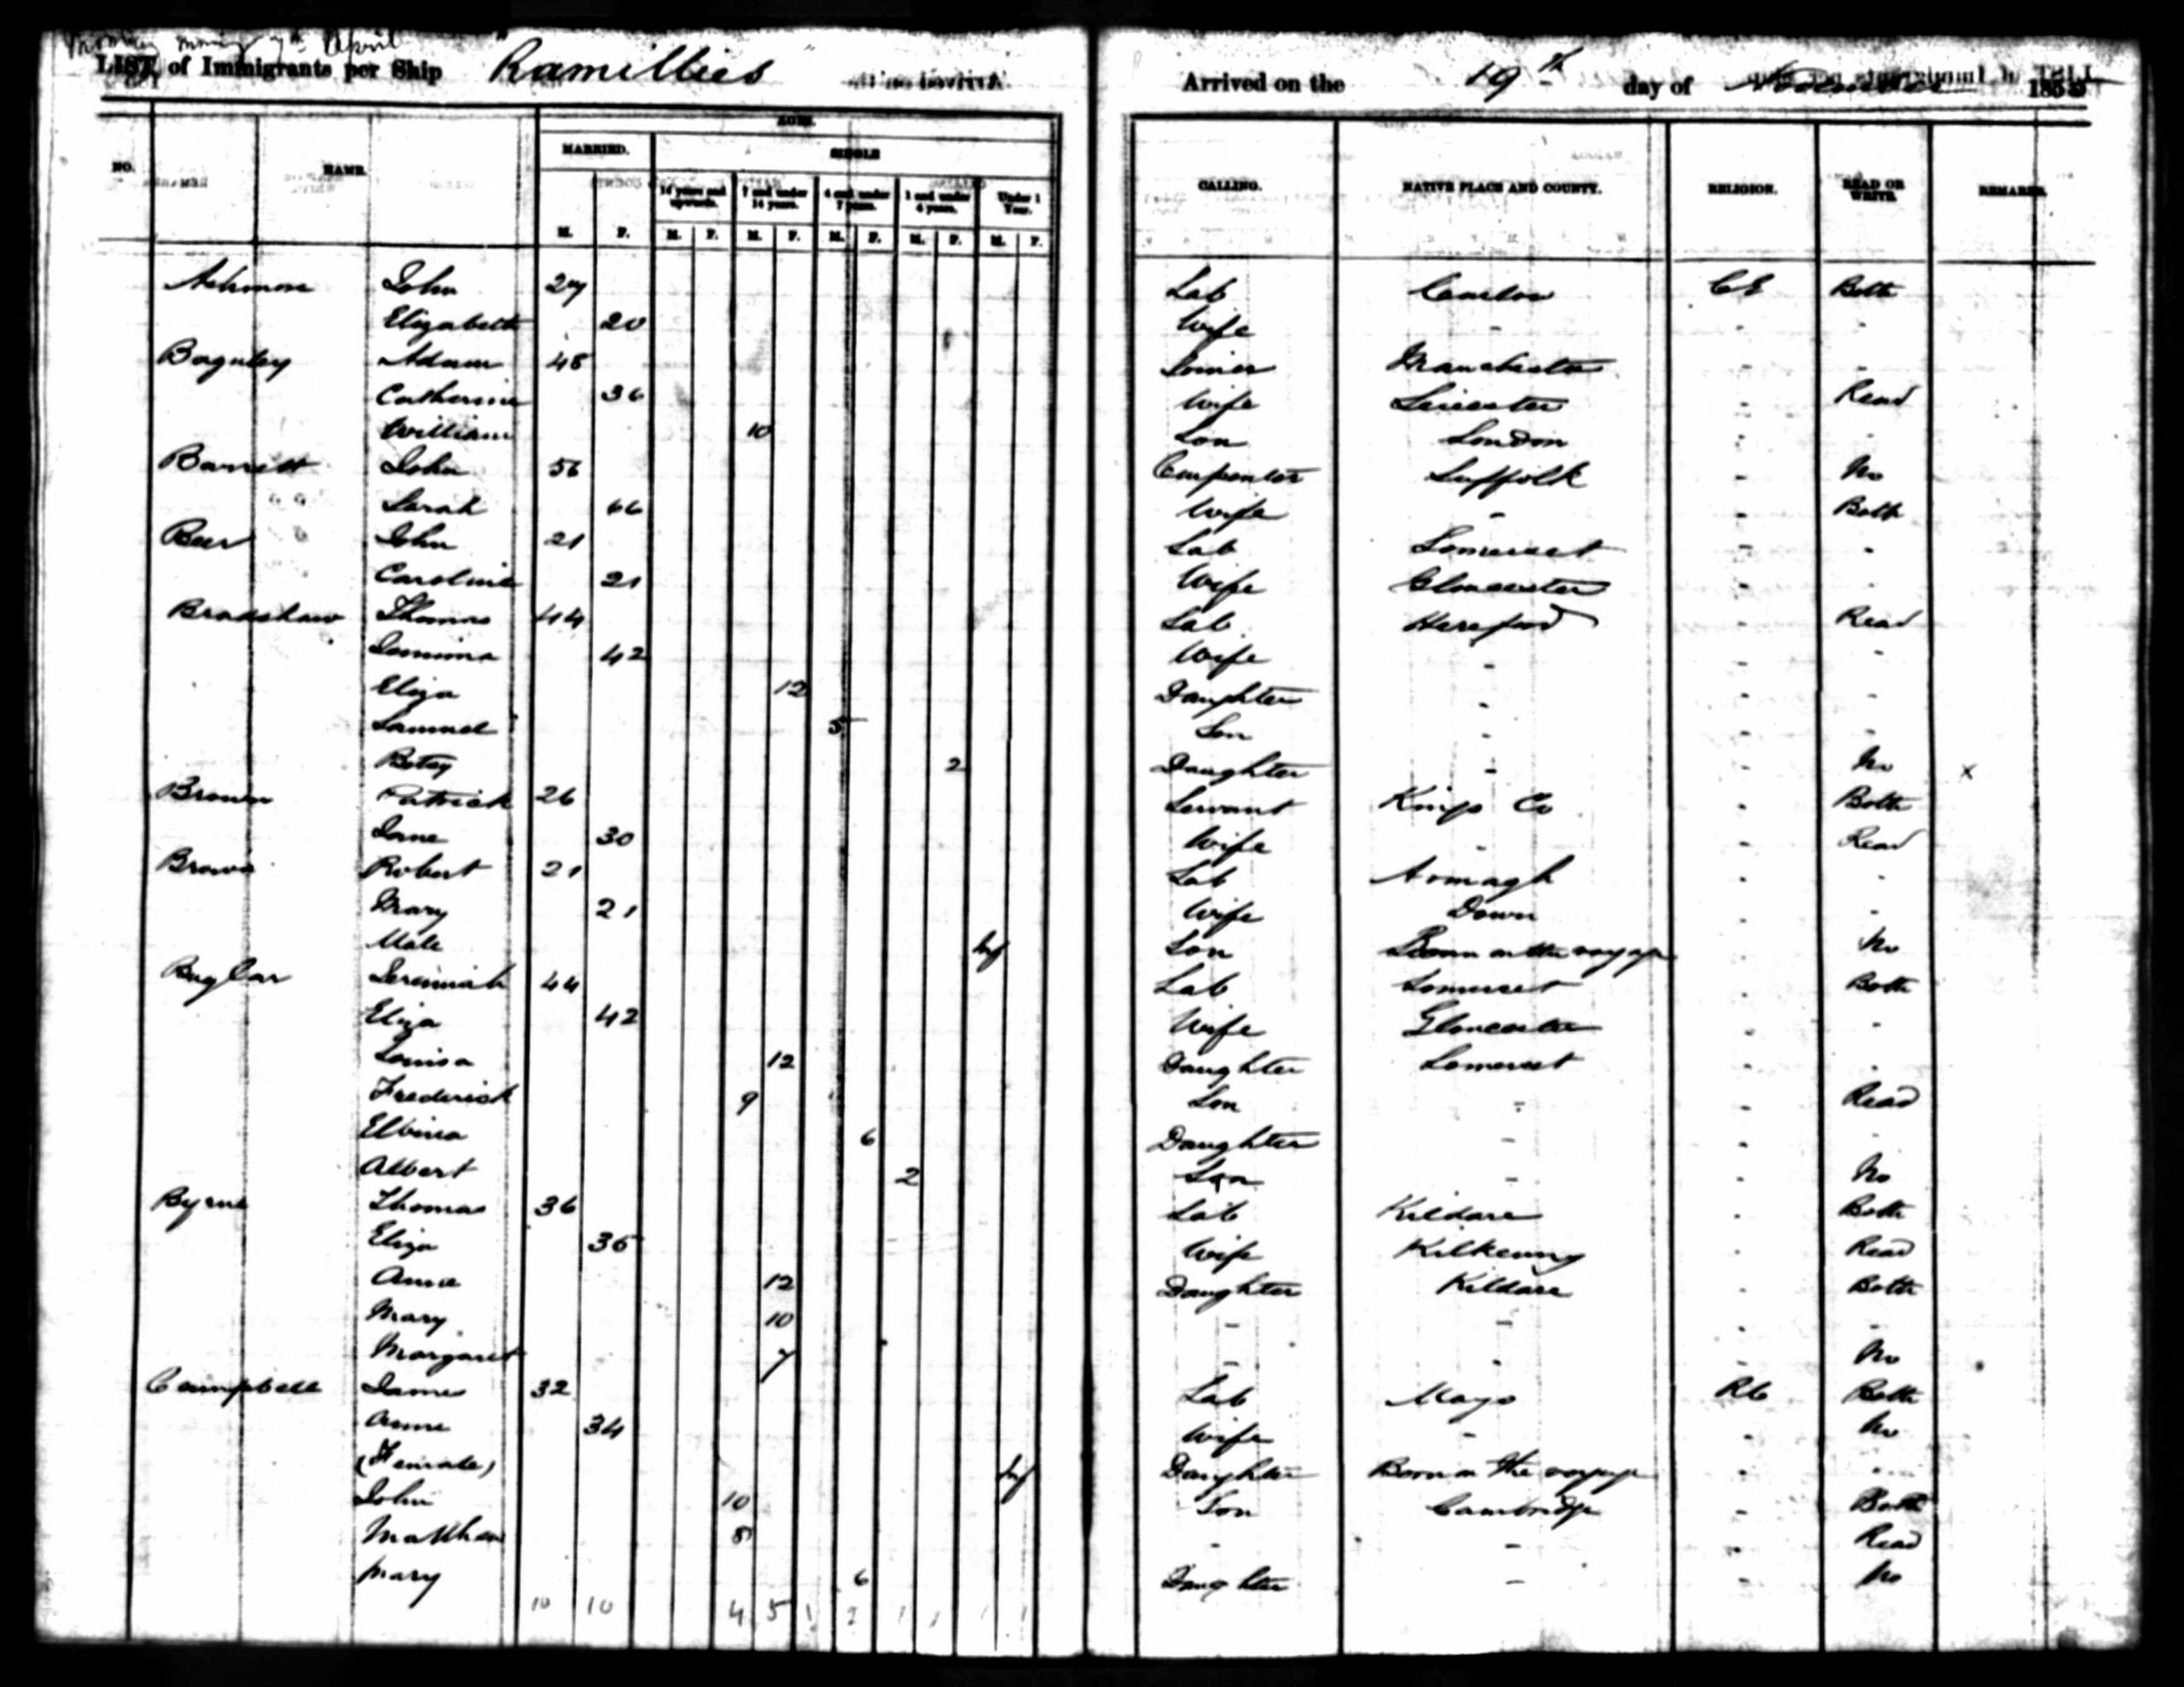 April
LIST of Immigrants per Ship "Ramillies" Arrived on the 19th day of November 185
AGES.
MARRIED. SINGLE
NO. NAME. 14 years and upwards. 7 and under 14 years. 4 and under 7 years. 1 and under 4 years. Under 1 Year. CALLING. NATIVE PLACE AND COUNTY. RELIGION. READ OR WRITE. REMARKS.
M. F. M. F. M. F. M. F. M. F. M. F.
Ashmore John 27 Lab Carlow CE Both
Elizabeth 20 Wife - - -
Bagnley Adam 48 Joiner Manchester - -
Catherine 36 Wife Leicester - Read
William 10 Son London - -
Barrett John 56 Carpenter Suffolk - No
Sarah 66 Wife - - Both
Beer John 21 Lab Somerset - -
Caroline 21 Wife Gloucester - -
Bradshaw Thomas 44 Lab Hereford - Read
Jemima 42 Wife - - -
Eliza 12 Daughter - - -
Samuel 5 Son - - -
Betsy 2 Daughter - - No x
Brown Patrick 26 Servant Kings Co - Both
Jane 30 Wife - - Read
Brown Robert 21 Lab Armagh - -
Mary 21 Wife Down - -
Male Inf Son Born on the voyage No
Buglar Jeremiah 44 Lab Somerset - Both
Eliza 42 Wife Gloucester - -
Louisa 12 Daughter Somerset - -
Frederick 9 Son - - Read
Elbina 6 Daughter - - -
Albert 2 Son - - No
Byrne Thomas 36 Lab Kildare - Both
Eliza 35 Wife Kilkenny - Read
Anne 12 Daughter Kildare - Both
Mary 10 - - - -
Margaret 7 - - - No
Campbell James 32 Lab Mayo RC Both
Anne 34 Wife - - No
(Female) Inf Daughter Born on the voyage - -
John 10 Son Cambridge - Both
Matthew 8 - - - Read
Mary 6 Daughter - - No
10 10 4 5 1 2 1 1 1 1